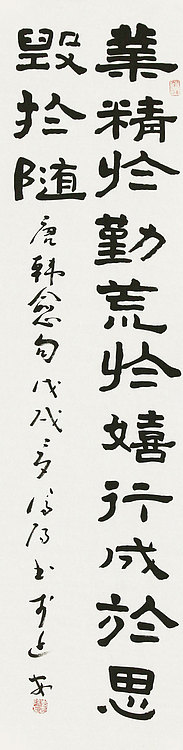 業精於勤荒於嬉行成於思
毀於随
唐韩愈句戊戌